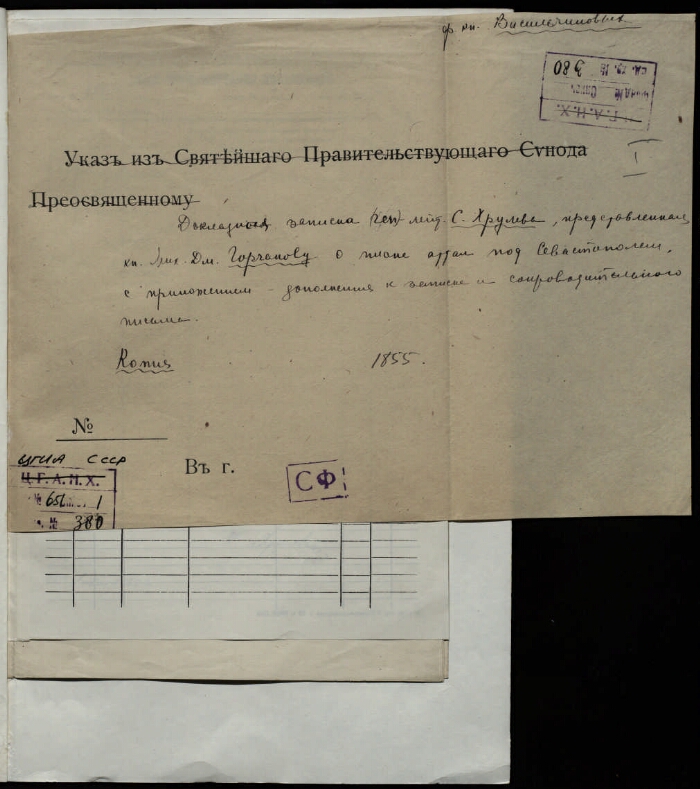 ф кн. Васильчиковых
Ц.Г.А.Н.Х.
фонд № Опись
ед. хр. № 380
I
Указъ изъ Святѣйшаго Правительствующаго Сѵнода
Преосвященному
Докладная записка (ген)-лейт. С. Хрулева, представленная
кн. Мих. Дм. Горчакову о плане атаки под Севастополем,
с приложением дополнения к записке и сопроводительного
письма.
Копия 1855.
№
ЦГИА СССР
Въ г.
СФ
Ц.Г.А.Н.Х.
№ 651 1
№ 380